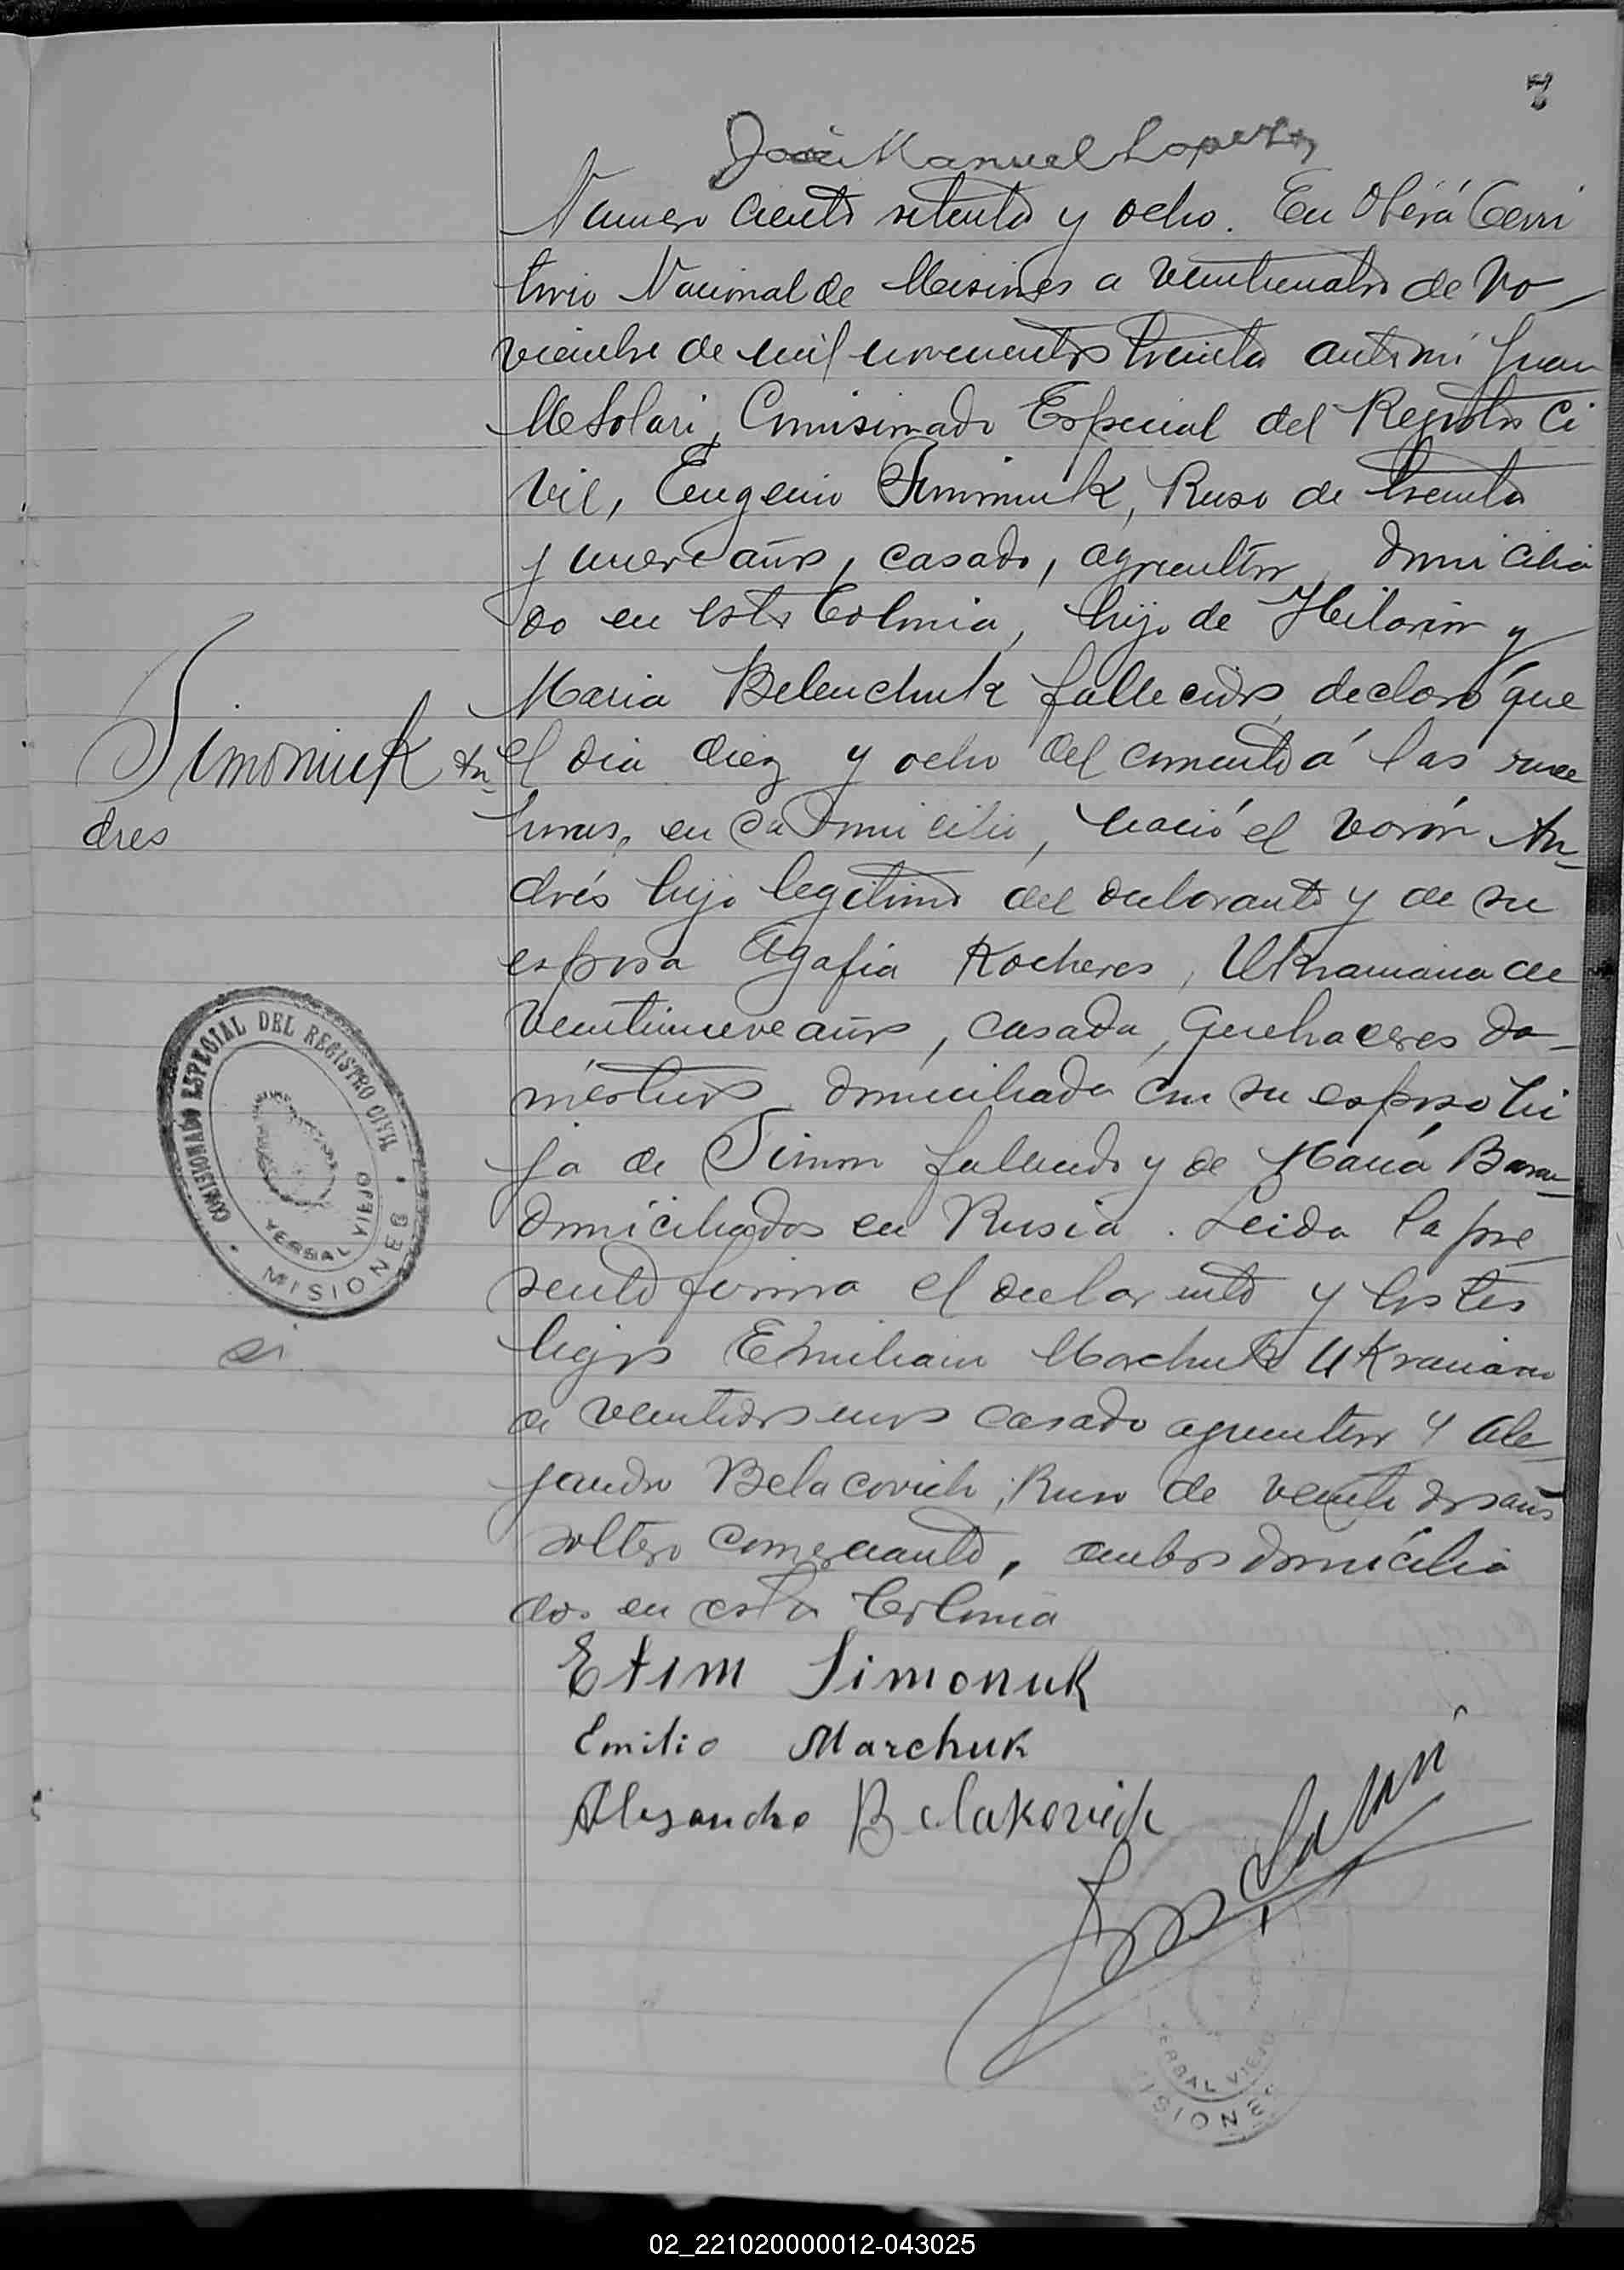 7
José Manuel Lopez
Numero ciento setenta y ocho. En Oberá Terri
torio Nacional de Misiones a veinticuatro de No-
viembre de mil novecientos treinta ante mi Juan
M Solari, Comisionado Especial del Registro Ci
vil, Eugenio Simoniuk, Ruso de treinta
y nueve años, casado, agricultor, domicilia
do en esta Colonia, hijo de Hilarion y
Maria Belenchuk fallecidos, declaró que
Simoniuk An-
dres
el dia diez y ocho del corriente á las
horas, en su domicilio, nació el varón An-
drés hijo legitimo del declarante y de su
esposa Agafia Kocheres, Ukraniana de
veintinueve años, casada, quehaceres do-
mésticos domiciliada con su esposo hi
ja de Simon fallecido y de María
domiciliados en Rusia. Leida la pre-
sente firma el declarante y los tes
tigos Emiliano Marchuk Ukraniano
de veintidos años casado agricultor y Ale-
jandro Belacovich, Ruso de veinte dos años
soltero comerciante, ambos domicilia
dos en esta Colonia
COMISIONADO ESPECIAL DEL REGISTRO CIVIL
YERBAL VIEJO
MISIONES
Efim Simonuk
Emilio Marchuk
Alesandro Belakovich
YERBAL VIEJO
MISIONES
02_221020000012-043025